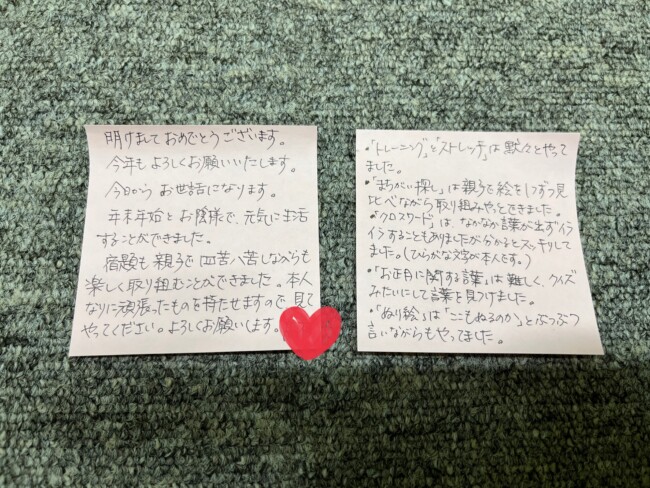 明けましておめでとうございます。
今年もよろしくお願いいたします。
今日からお世話になります。
年末年始とお陰様で、元気に生活
することができました。
宿題も親子で四苦八苦しながらも
楽しく取り組むことができました。本人
なりに頑張ったものを持たせますので、見て
やってください。よろしくお願いします。
・「トレーニング」と「ストレッチ」は黙々とやって
ました。
・「まちがい探し」は親子で絵を1つずつ見
比べながら取り組みやっとできました。
・「クロスワード」は、なかなか言葉が出ずイライ
ラすることもありましたが分かるとスッキリして
ました。(ひらがな文字が本人です。)
・「お正月に関する言葉」は難しく、クイズ
みたいにして言葉を見つけました。
・「ぬり絵」は「ここもぬるのか」とぶつぶつ
言いながらもやってました。